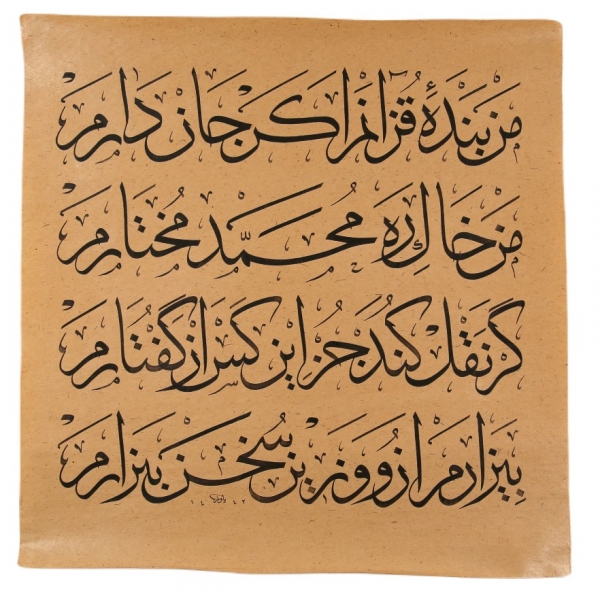 من بندهٔ قرآنم اكر جان دارم
من خاك ره محمد مختارم
گر نقل كند جز این كس از گفتارم
بیزارم ازو وزین سخن بیزارم